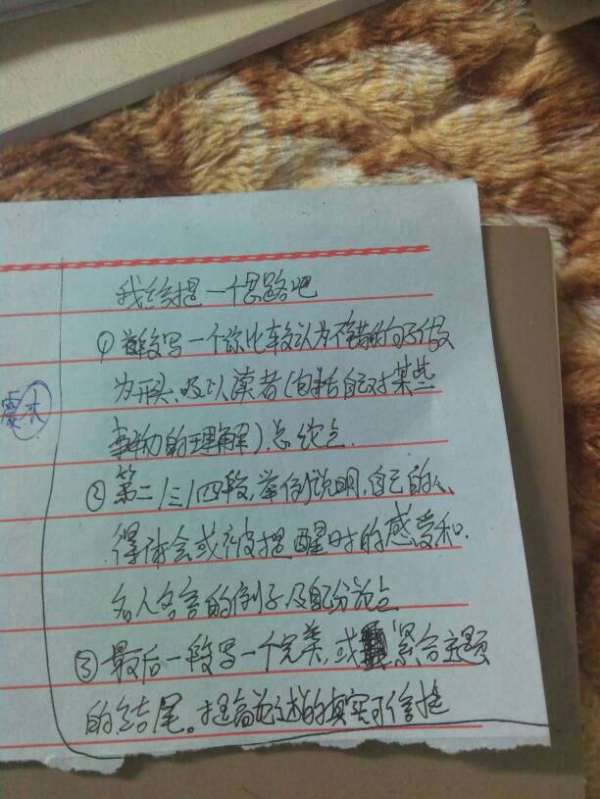 我给提一个思路吧
①首段写一个你比较认为不错的句子做
为开头、吸引读者(包括自己对某些
事物的理解)、总论点
②第二/三/四段,举例说明,自己的心
得体会或被提醒时的感受和
名人名言的例子及分论点
③最后一段写一个完美,或紧合主题
的结尾。提高论述的真实可信度